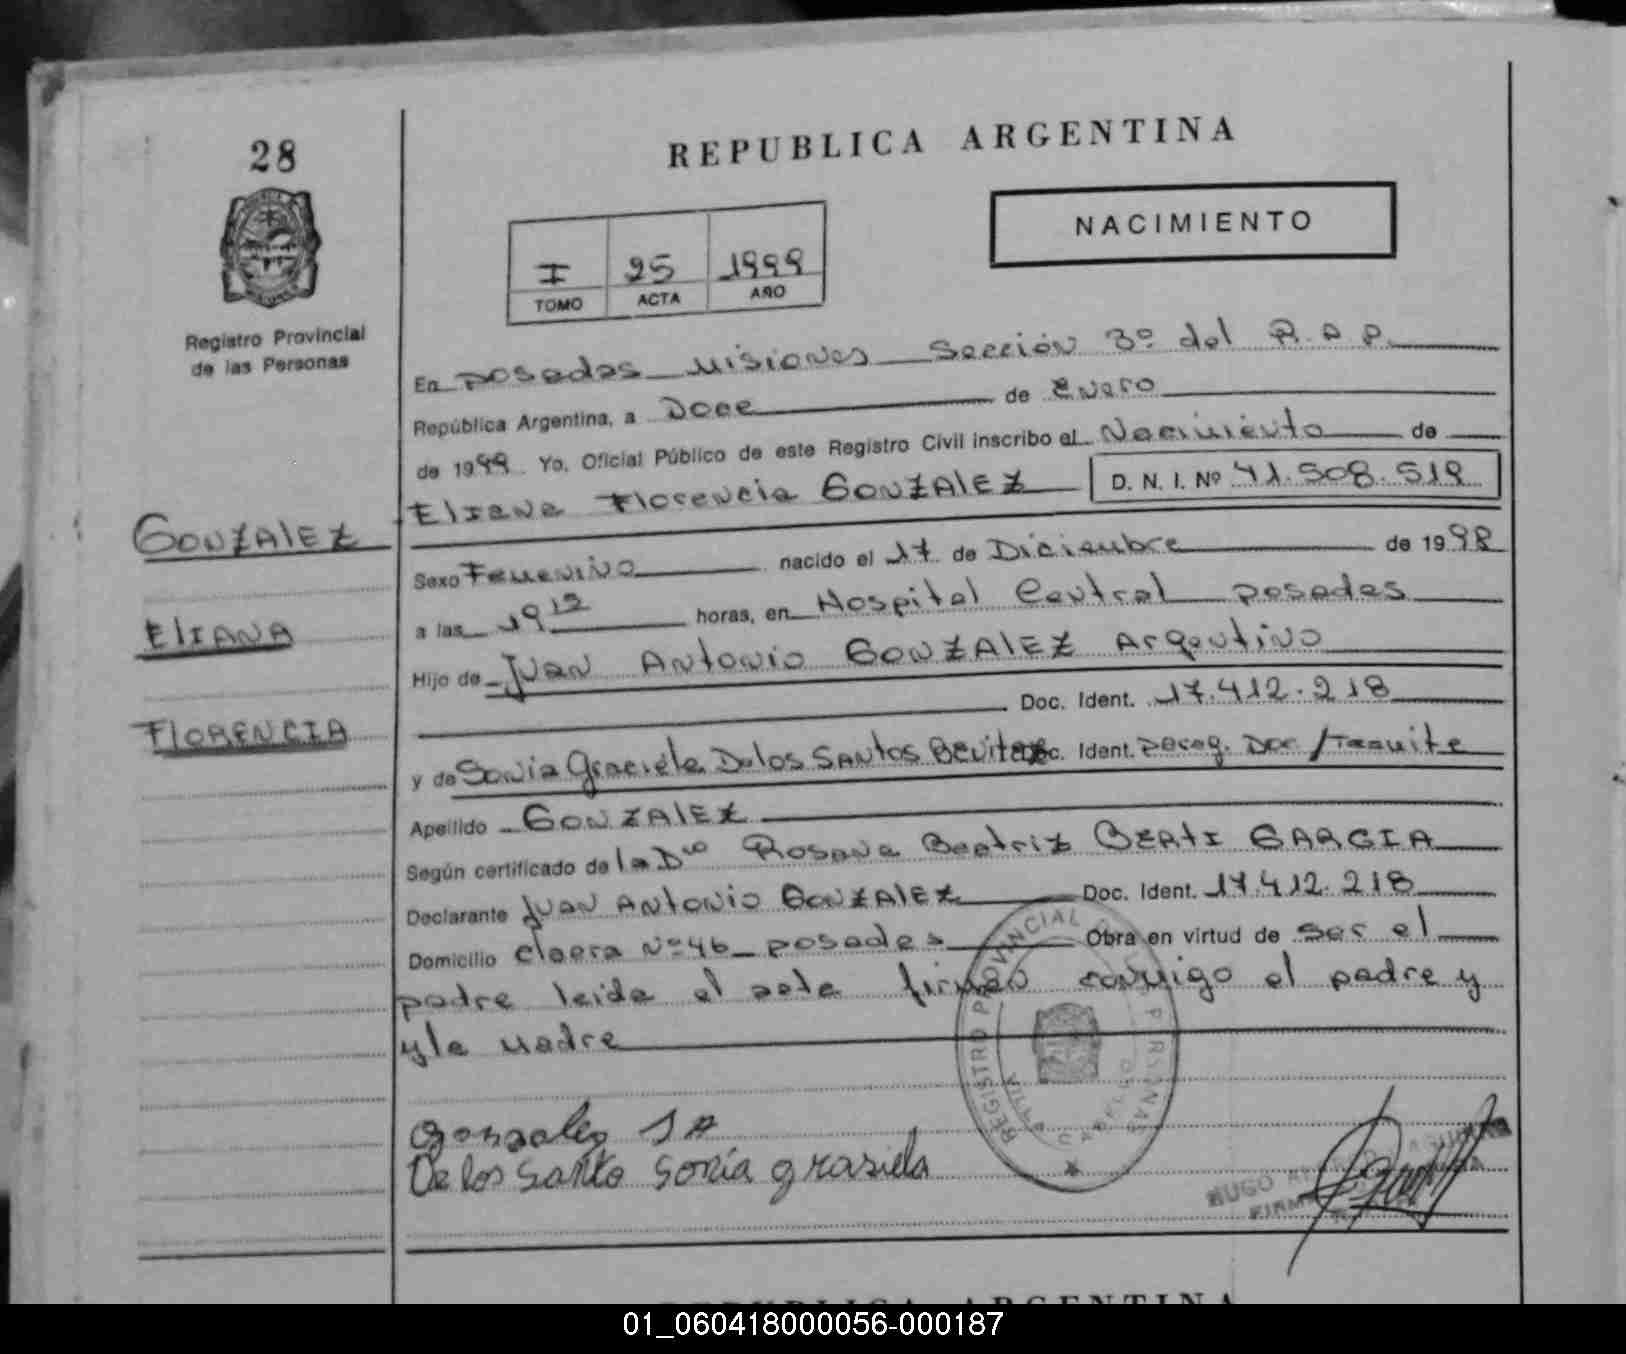 28
REPUBLICA ARGENTINA
NACIMIENTO
I 25 1999
TOMO ACTA AÑO
Registro Provincial
de las Personas
En posadas Misiones Sección 3º del R.P.P.
República Argentina, a Doce de Enero
de 1999 Yo, Oficial Público de este Registro Civil inscribo el Nacimiento de
Eliana Florencia GONZALEZ D. N. I. Nº 41.508.519
GONZALEZ
ELIANA
FLORENCIA
Sexo Femenino nacido el 17 de Diciembre de 1998
a las 19 12 horas, en Hospital Central posadas
Hijo de Juan Antonio GONZALEZ Argentino
Doc. Ident. 17.412.218
y de Sonia Graciela De los Santos Doc. Ident. Parag. Doc /Tramite
Apellido GONZALEZ
Según certificado de la Dra Rosana Beatriz BERTI GARCIA
Declarante Juan Antonio GONZALEZ Doc. Ident. 17.412.218
Domicilio Nº 46 posadas Obra en virtud de ser el
padre leida el acta firman conmigo el padre y
y la madre
REGISTRO PROVINCIAL DE LAS PERSONAS
Gonzalez J A
De los Santo Sonia grasiela
HUGO
REPUBLICA ARGENTINA
01_060418000056-000187